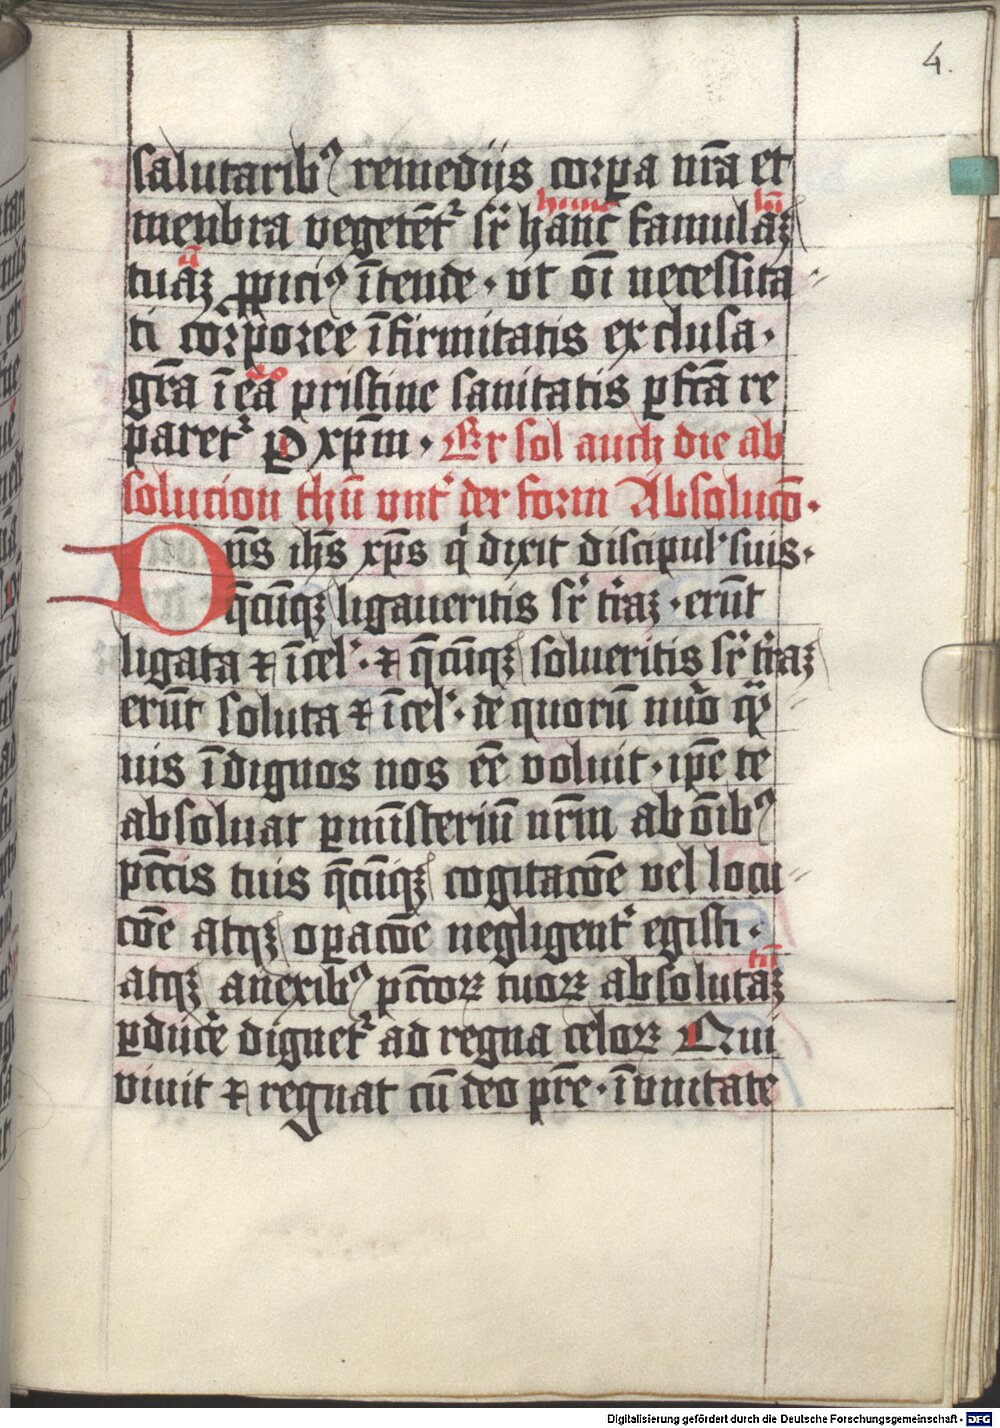 4.
salutaribꝰ remedijs corꝑa nr̄a et
hunc lū
menbra vegetēt᷑ sr̄ hanc famulaꝫ
ū
tuaꝫ ꝓpiciꝰ ītende · vt oī necessita⸗
ti corꝑoree īfirmitatis exclusa ·
eo
gr̄a ī ea pristine sanitatis ꝑfc̄a re
paret᷑ P xp̄m · Er sol auch die ab
solucion thū vnt᷑ der form Absolucō ·
Dn̄s ih̄s xp̄s qͥ dixit discipul᷑ suis ·
q̄cūqꝫ ligaueritis sr̄ tr̄aꝫ · erūt
ligata ⁊ ī cel᷑ · ⁊ q̄cūqꝫ solueritis sr̄ tr̄aꝫ
erūt soluta ⁊ ī cel᷑ · de quorū nūo qͣ⸗
uis īdignos nos eē voluit · ip̄e te
absoluat ꝑ mīsteriū nr̄m ab oībꝰ
pc̄cis tuis q̄cūqꝫ cogitacōe vel locu⸗
cōe atqꝫ oꝑacōe negligent᷑ egisti ·
tū
atqꝫ anexibꝰ pc̄coꝝ tuoꝝ absolutaꝫ
ꝑduce᷑ dignet᷑ ad regna celoꝝ Qui
viuit ⁊ regnat cū deo pr̄e · ī vnitate
Digitalisierung gefördert durch die Deutsche Forschungsgemeinschaft - DFG